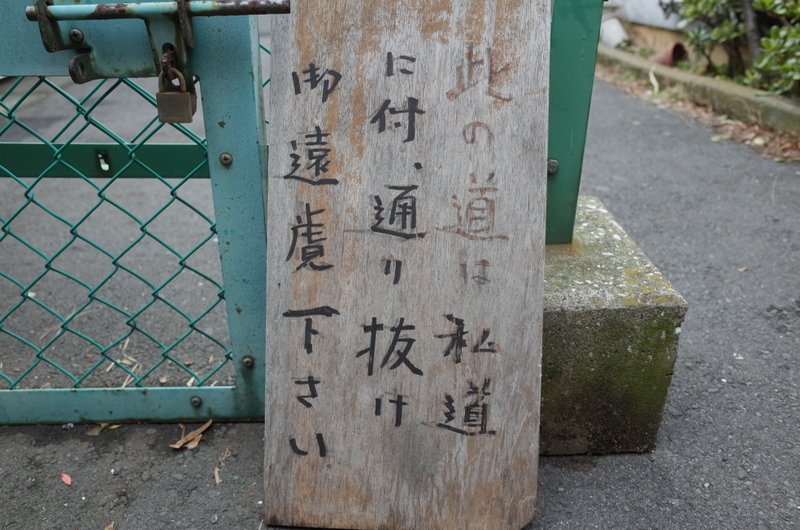 此の道は私道
に付、通り抜け
御遠慮下さい